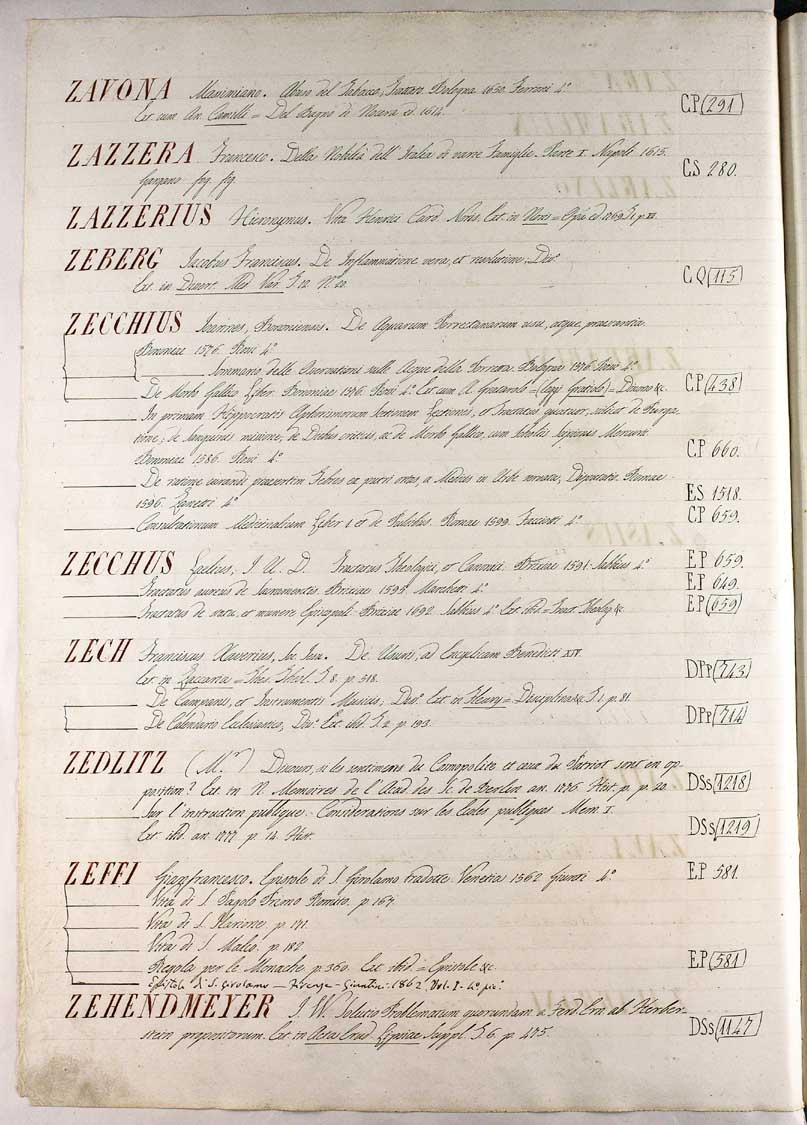 ZAVONA Massimiano. Abuso del Tabacco, Trattato. Bologna 1650. Ferroni 4º
Est cum An. Camilli = Del Bagno di Nocera ed. 1614. CP (291)
ZAZZERA Francesco. Della Nobiltà dell' Italia di varie Famiglie. Parte I. Napoli 1615.
Gargano fig. fig. CS 280.
ZAZZERIUS Hieronymus. Vita Henrici Card. Noris. Est. in Noris = Opera ed. T. I. p.
ZEBERG Jacobus Franciscus. De Inflammatione vera, et resolutione. Diss.
Est. in Dissert. Med. Var. T. 12. Nº 20. CQ (115)
ZECCHIUS Joannes, Bononiensis. De Aquarum Porrectanarum usu, atque praestantia.
Bononiae 1576. Rossi 4º
Sommario delle Osservationi sulle Acque della Porretta. Bologna 1576. Rossi 4º
De Morbo Gallico Liber. Bononiae 1586. Rossi 4º Est cum A. = (leggi) = &c. CP (438)
In primam Hippocratis Aphorismorum Sectionem Lectiones, et Tractatus quatuor; videlicet de Purga-
tione; de Sanguinis missione; de Diebus criticis, ac de Morbo Gallico, cum Scholiis Scipionis Mercurii
Bononiae 1586. Rossi 4º CP 660.
De ratione curandi praesertim Febres ex putri ortas, a Medicis in Urbe Disputatio. Romae
1596. Zanetti 4º ES 1518.
Consultationum Medicinalium Liber I. et de Pulsibus. Romae 1599. Facciotti 4º CP 659.
ZECCHUS Laelius, J. U. D. Tractatus Theologici, et Canonici. Brixiae 1591. Sabbius 4º EP 659.
Tractatus aureus de Sacramentis. Brixiae 1595. Marchetti 4º EP 649.
Tractatus de statu, et munere Episcopali. Brixiae 1692. Sabbius 4º Est ibid. = Tract. Theolog. &c. EP (659)
ZECH Franciscus Xaverius, Soc. Jesu. De Usuris, ad Encyclicam Benedicti XIV.
Est. in Zaccaria = Thes. Theol. T. 8. p. 318. DPp (743)
De Campanis, et Instrumentis Musicis, Diss. Est in Fleury = Disciplina &c. T. 1. p. 81.
De Calendario Ecclesiastico, Diss. Est. ibid. T. 2. p. 193. DPp (714)
ZEDLITZ (M.r) Discours, si les sentiments du Cosmopolite et ceux du Patriot sont en op-
position? Est. in N. Memoires de l'Acad. des Sc. de Berlin an. 1776. Hist. p. p. 20. DSs (1218)
Sur l'instruction publique. Considerations sur les Ecoles publiques Mem. I.
Est ibid. an. 1777. p. 14. Hist. DSs (1219)
ZEFFI Gianfrancesco. Epistole di S. Girolamo tradotte. Venetia 1562. Giunti 4º EP 581.
Vita di S. Pagolo Primo Romito. p. 167.
Vita di S. Ilarione p. 171.
Vita di S. Malco. p. 182.
Regola per le Monache p. 360. Est. ibid. = Epistole &c. EP (581)
Epistole di S. Girolamo — Firenze - Giuntini 1862 Vol. I - 4º pic.
ZEHENDMEYER J. W. Solutio Problematum quorumdam a Ferd. Ern. ab Herber-
stein propositorum. Est in Acta Erud. Lipsiae Suppl. T. 6. p. 475. DSs (1147)